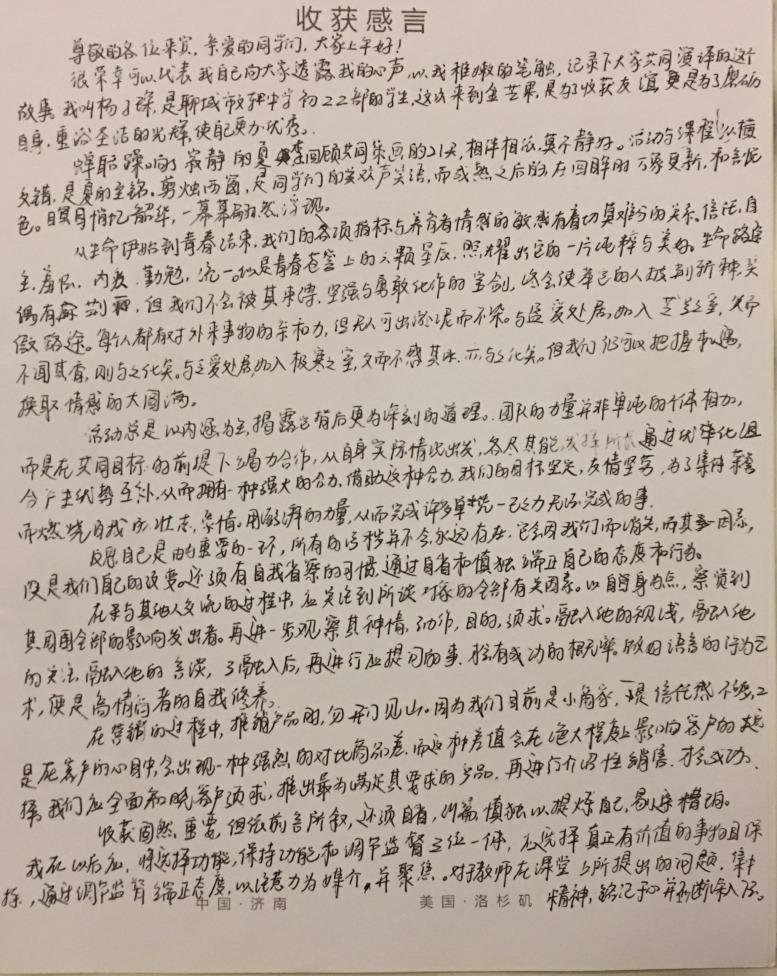 收获感言
尊敬的各位来宾,亲爱的同学们,大家上午好!
很荣幸可以代表我自己向大家透露我的心声,以我稚嫩的笔触,记录下大家共同演译的这个
故事,我叫杨子琛,是聊城市中学初22部的学生,这次来到金苹果,是为了收获友谊,更是为了磨砺
自身,重浴圣洁的光辉,使自己更加优秀。
蝉聒噪响了寂静的夏,回顾共同策画的21天,相伴相依,莫不静好。活动与课程纵横
交错,是夏的主铭。剪烛西窗,是同学们的英欢声笑语,而或熟之后的,在回眸时万象更新,和
色。瞑目悄忆韶华,一幕幕油然浮现。
从生命伊始到青春结束,我们的各项指标与养育者情感的敏感有着切莫难分的关系。信任,自
主,羞耻,内疚,勤勉,统一,似是青春苍空上的六颗星辰,照耀出它的一片纯粹与美好。生命路途
偶有荆棘,但我们不会被其束缚,坚强与勇敢化作的宝剑,终会使
途。每个人都有对外来事物的亲和力,但无人可出淤泥而不染。与适爱处居,如入芝兰之室,久而
不闻其香,则与之化矣。与乏爱处居,如入极寒之室,久而不感其冰,亦与之化矣。但我们仍可以把握机遇,
换取情感的大圆满。
活动总是以内涵为主,揭露它背后更为深刻的道理。团队的力量并非单纯的个体相加,
而是在共同目标的前提下竭力合作,从自身实际情况出发,各尽其能,发挥所长,通过优化组
合产生优势互补,从而拥有一种强大的合力,借助这种合力,我们的目标坚定,友情坚实,为了集体荣誉
而燃烧自我的壮志,豪情。用澎湃的力量,从而完成许多单凭一己之力无法完成的事。
反思自己是尤为重要的一环,所有的污秽并不会永远存在,它会因我们而消失,而其主因素,
便是我们自己的改变。还须有自我省察的习惯,通过自省和慎独端正自己的态度和行为。
在于与其他人交流的过程中,应关注到所谈对象的全部有关因素。以自身为点,察觉到
其周围全部的影响发出者。再进一步观察其神情,动作,目的,须求。融入他的视线,融入他
的关注,融入他的言谈,了融入后,再进行应提问的事,才会有成功的概率。做回语言的行为艺
术,便是高情商者的自我修养。
在营销的过程中,推销产品时,勿开门见山。因为我们目前是小商家,一是信任感不够,二
是在客户的心目中,会出现一种强烈的对比商品差,而这种差值会在绝大程度上影响客户的选
择,我们应全面和晓客户须求,推出最为满足其要求的产品,再进行介绍性销售,才会成功。
收获固然重要,但依前言所叙,还须自省,慎独以提炼自己,
我在以后应,将选择功能,保持功能和调节监督三位一体,应选择真正有价值的事物且保
持,通过调节监督端正态度,以注意力为媒介,并聚焦。对于教师在课堂上所提出的问题,集中
精神,铭记于心并不断深入了。
中国·济南 美国·洛杉矶